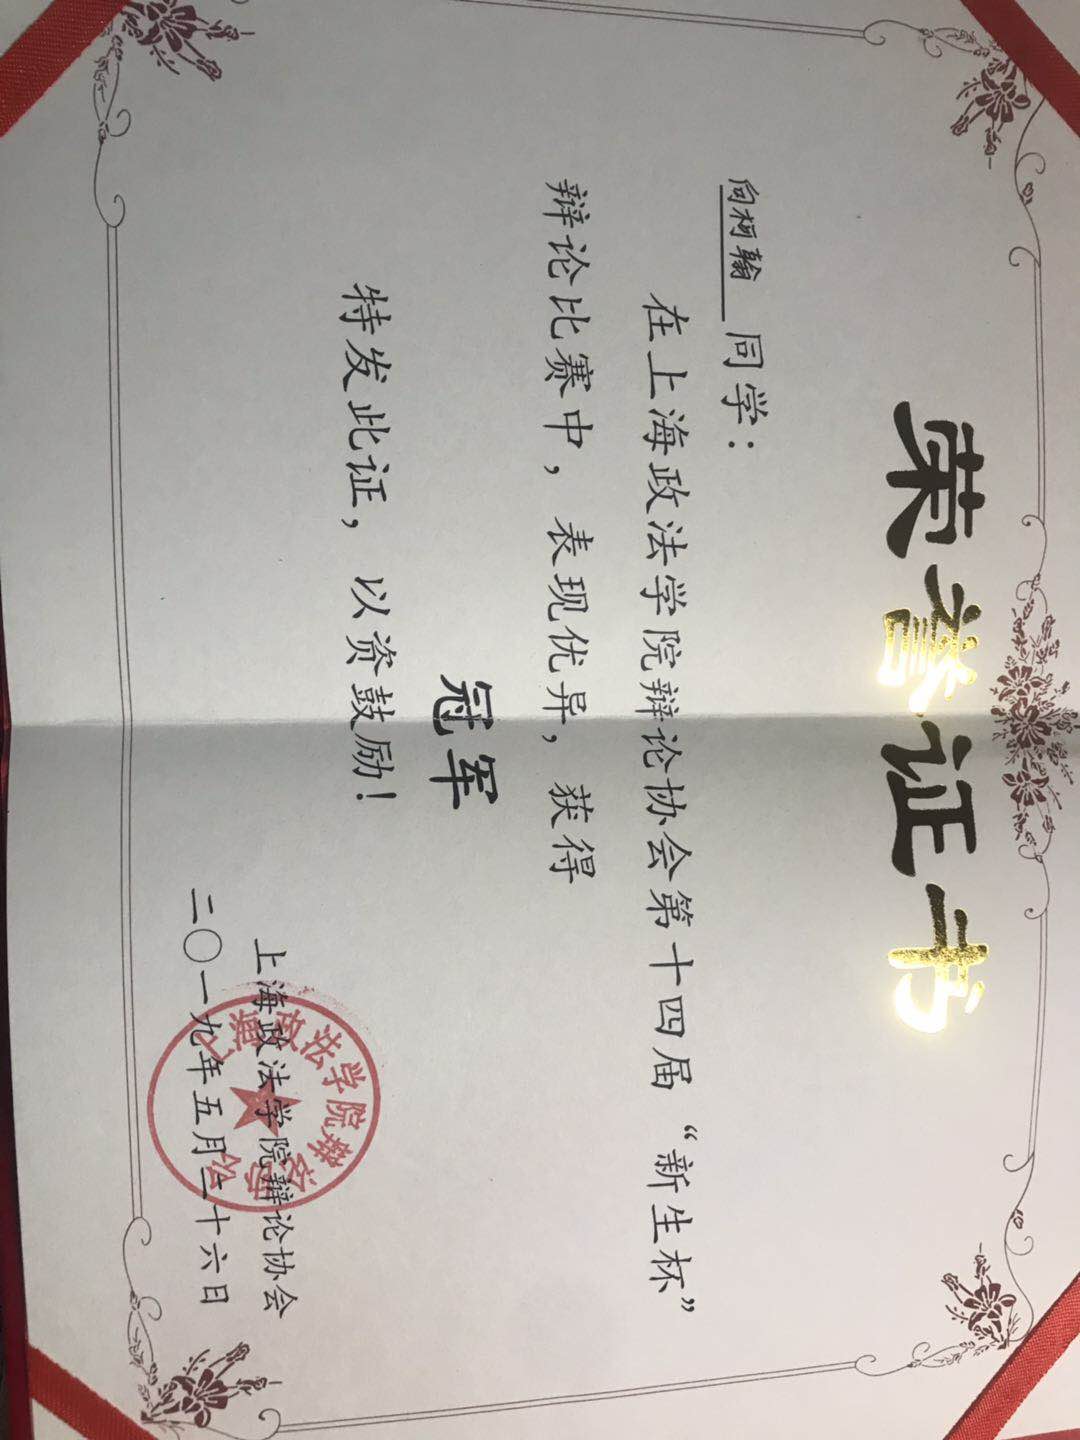 荣誉证书
向柯翰 同学：
在上海政法学院辩论协会第十四届“新生杯”
辩论比赛中，表现优异，获得
冠军
特发此证，以资鼓励！
上海政法学院辩论协会
二〇一九年五月二十六日
上海政法学院辩论协会